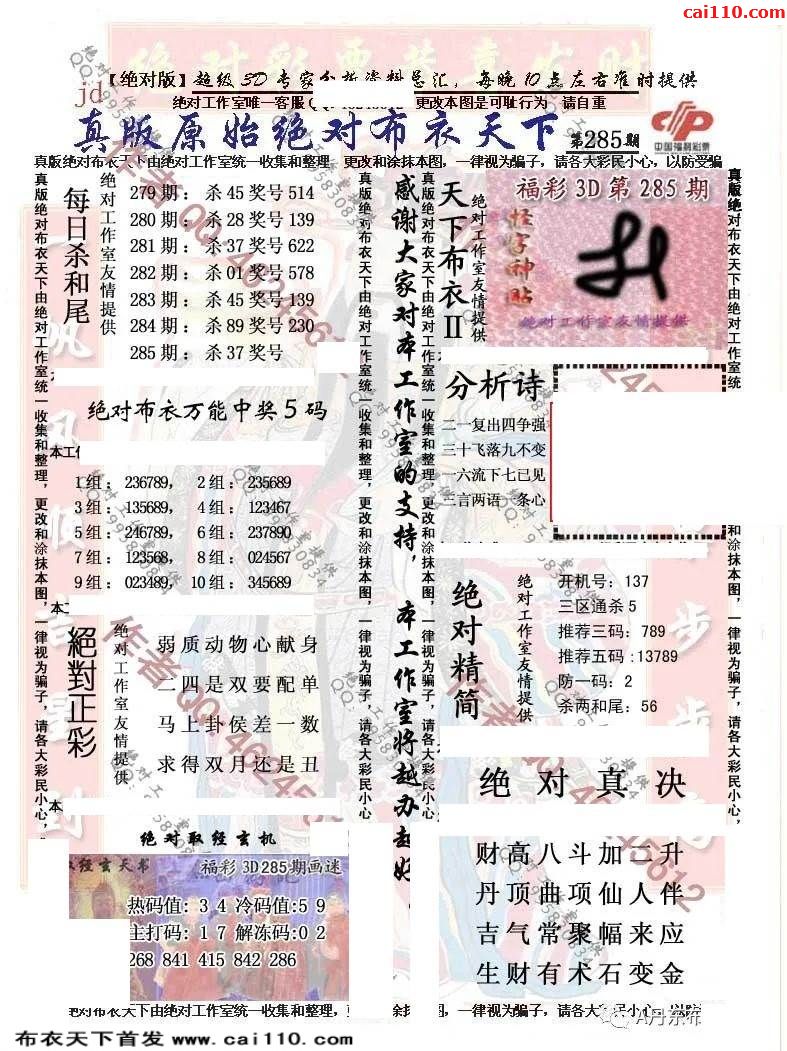 cai110.com
【绝对版】超级3D专家分析资料总汇，每晚10点左右准时提供
jd
绝对工作室唯一客服 更改本图是可耻行为 请自重
真版原始绝对布衣天下 第285期
中国福利彩票
真版绝对布衣天下由绝对工作室统一收集和整理，更改和涂抹本图，一律视为骗子，请各大彩民小心，以防受骗
每日杀和尾
绝对工作室友情提供
279期：杀45奖号514
280期：杀28奖号139
281期：杀37奖号622
282期：杀01奖号578
283期：杀45奖号139
284期：杀89奖号230
285期：杀37奖号
绝对布衣万能中奖5码
1组：236789，2组：235689
3组：135689，4组：123467
5组：246789，6组：237890
7组：123568，8组：024567
9组：023489，10组：345689
絕對正彩
绝对工作室友情提供
弱质动物心献身
二四是双要配单
马上卦侯差一数
求得双月还是丑
绝对取经玄机
取经玄天书
福彩3D285期画迷
热码值：34冷码值：59
主打码：17解冻码：02
268 841 415 842 286
真版绝对布衣天下由绝对工作室统一收集和整理，更改和涂抹本图，一律视为骗子，请各大彩民小心
感谢大家对本工作室的支持，本工作室将越办越好
天下布衣II
绝对工作室友情提供
福彩3D第285期
怪字神贴
绝对工作室友情提供
分析诗
二一复出四争强
三十飞落九不变
一六流下七已见
二言两语一条心
绝对精简
绝对工作室友情提供
开机号：137
三区通杀5
推荐三码：789
推荐五码：13789
防一码：2
杀两和尾：56
绝对真决
财高八斗加二升
丹顶曲项仙人伴
吉气常聚幅来应
生财有术石变金
绝对布衣天下由绝对工作室统一收集和整理，更改和涂抹本图，一律视为骗子，请各大彩民小心，以防
A丹东布
布衣天下首发 www.cai110.com